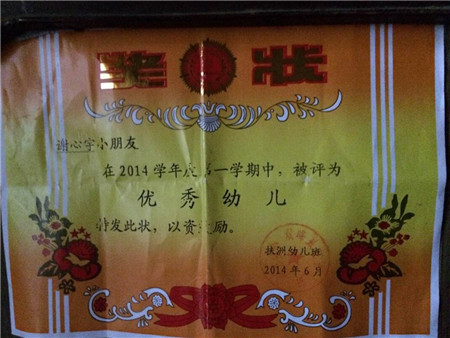 奖状
谢心宇小朋友
在2014学年度第一学期中，被评为
优秀幼儿
特发此状，以资 励。
扶洲幼儿班
2014年6月